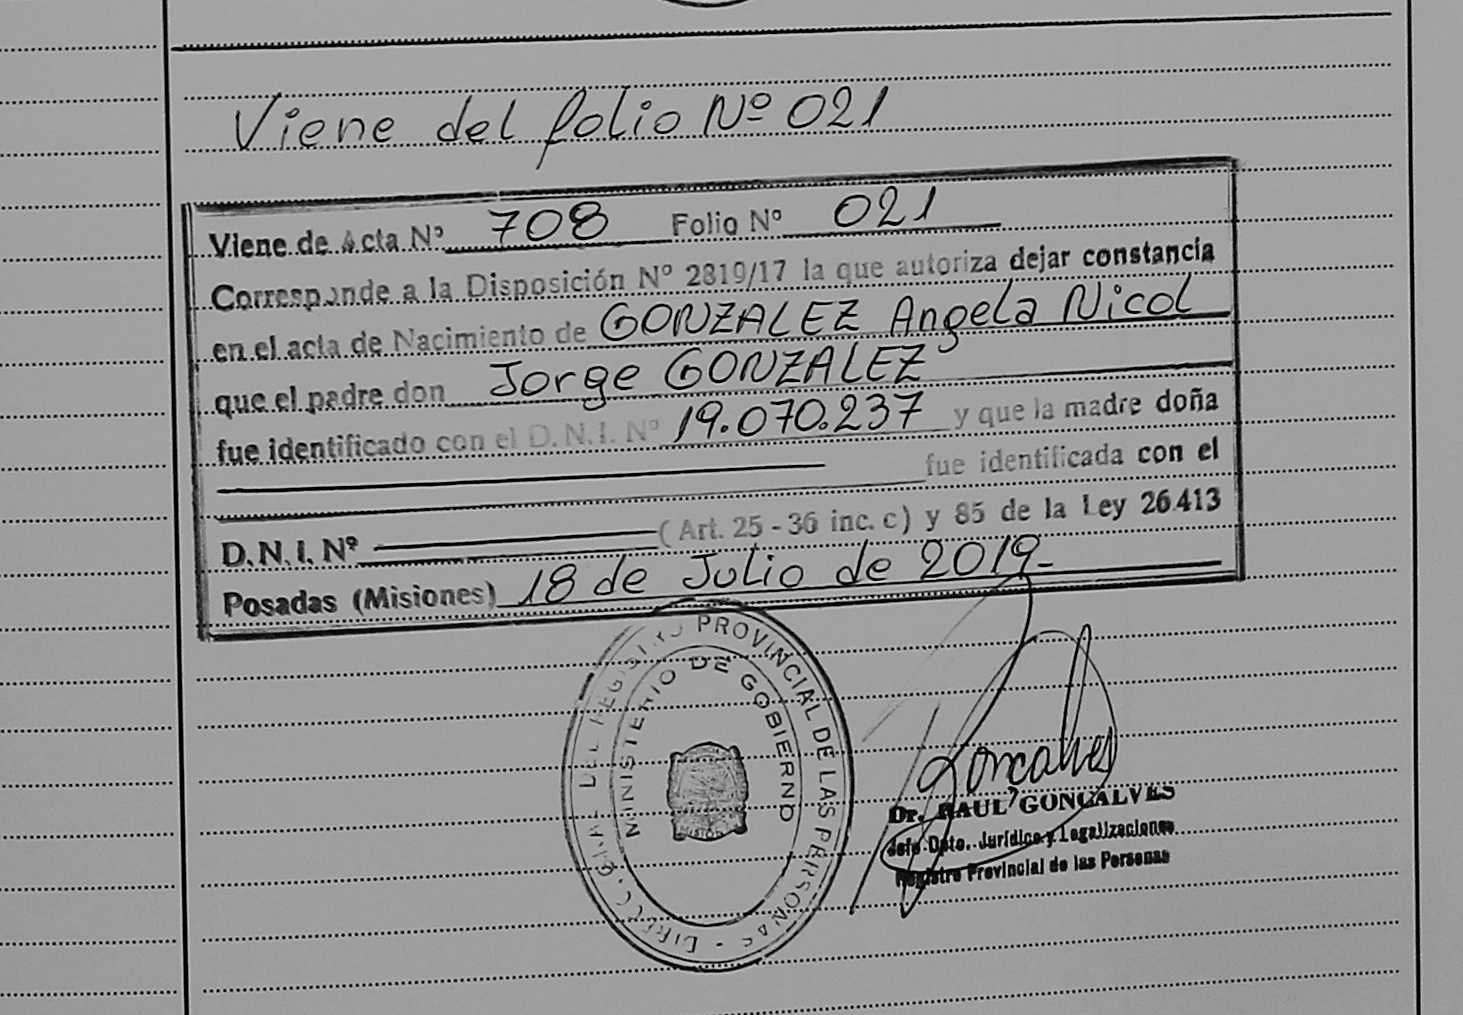 Viene del folio Nº 021
Viene de Acta Nº 708 Folio Nº 021
Corresponde a la Disposición Nº 2819/17 la que autoriza dejar constancia
en el acta de Nacimiento de GONZALEZ Angela Nicol
que el padre don Jorge GONZALEZ
fue identificado con el D.N.I. Nº 19.070.237 y que la madre doña
fue identificada con el
D.N.I. Nº (Art. 25 - 36 inc. c) y 85 de la Ley 26.413
Posadas (Misiones) 18 de Julio de 2019.-
PROVINCIAL DE LAS PERSONAS
MINISTERIO DE GOBIERNO
Goncalves
Dr. RAUL GONCALVES
Jefe Dpto. Jurídico y Legalizaciones
Registro Provincial de las Personas